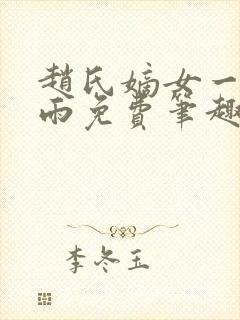 趙氏嫡女一
雨免費筆趣
李冬玉